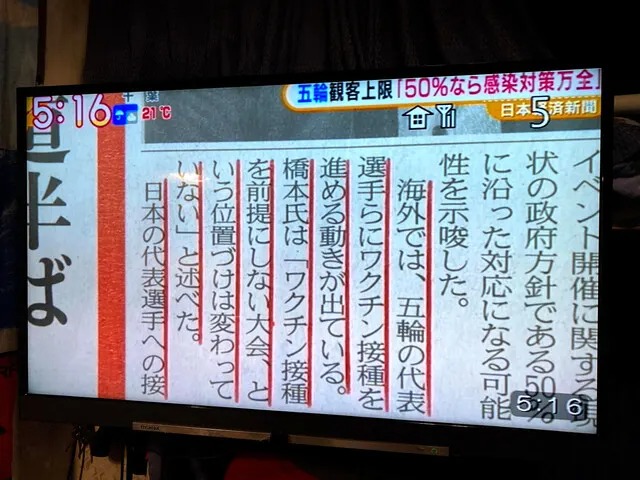 5:16
千葉
21℃
五輪観客上限「50%なら感染対策万全
日本経済新聞
5
イベント開催に関する現
状の政府方針である50%
に沿った対応になる可能
性を示唆した。
海外では、五輪の代表
選手らにワクチン接種を
進める動きが出ている。
橋本氏は「ワクチン接種
を前提にしない大会、と
いう位置づけは変わって
いない」と述べた。
日本の代表選手への接
半ば
5:16